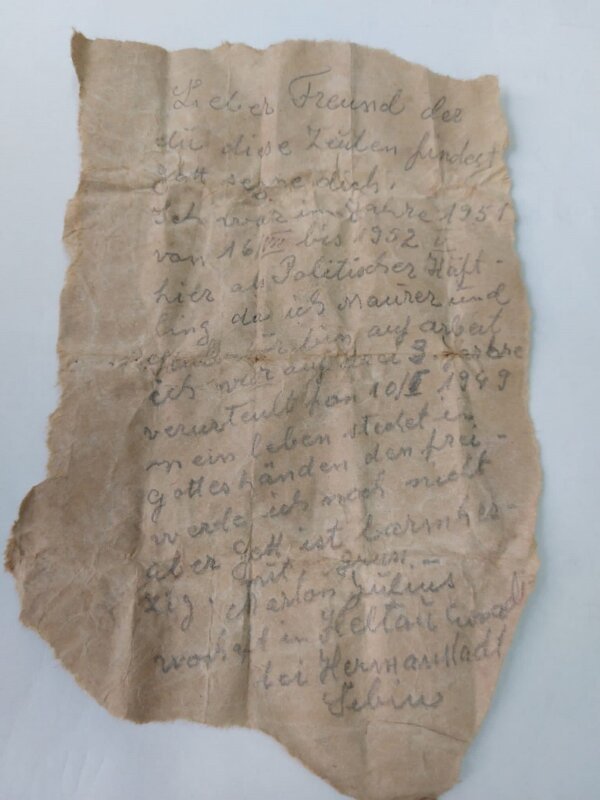 Lieber Freund der
du diese Zeilen findest
Gott segne dich.
Ich war im Jahre 1951
von 16/VIII bis 1952
hier als Politischer Häft-
ling da ich Maurer und
bin auf arbeit
ich war auf 3 Jahre
verurteilt von 10/I 1949
mein leben stehet in
Gottes händen den frei-
werde ich noch nicht
aber Gott ist barmher-
zig. mit grus. -
Marton Julius
wohaft in Heltau
bei Hermanstadt
Sebiu